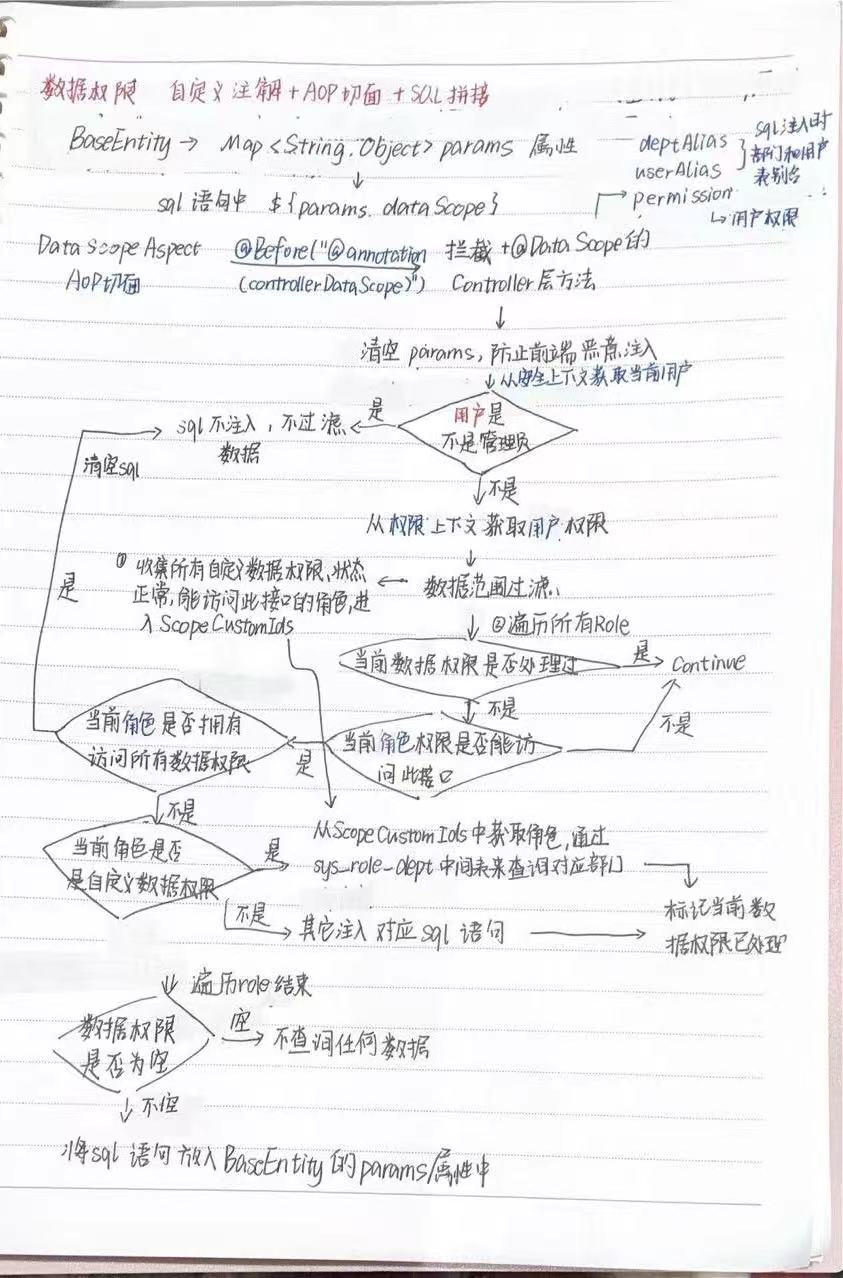 数据权限 自定义注解+AOP切面+SQL拼接
BaseEntity → Map<String.Object> params 属性
deptAlias
userAlias
sql注入时
部门和用户
表别名
permission
↳用户权限
sql 语句中 ${params.dataScope}
DataScopeAspect
AOP切面
@Before("@annotation
(controllerDataScope)")
拦截+@DataScope的
Controller层方法
清空 params, 防止前端恶意注入
从安全上下文获取当前用户
用户是
不是管理员
是
sql不注入, 不过滤
数据
清空sql
不是
从权限上下文获取用户权限
数据范围过滤
① 收集所有自定义数据权限、状态
正常, 能访问此接口的角色, 进
入ScopeCustomIds
②遍历所有Role
当前数据权限是否处理过
是
Continue
不是
当前角色权限是否能访
问此接口
不是
是
当前角色是否拥有
访问所有数据权限
是
不是
当前角色是否
是自定义数据权限
是
从ScopeCustomIds中获取角色, 通过
sys_role_dept中间表来查询对应部门
不是
其它注入对应sql语句
标记当前数
据权限已处理
遍历role结束
数据权限
是否为空
空
不查询任何数据
不空
将sql语句放入BaseEntity的params属性中